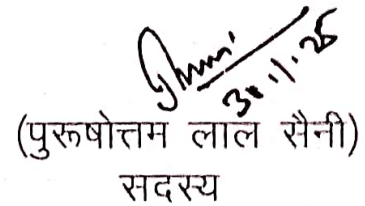 30.1.25
(पुरूषोत्तम लाल सैनी)
सदस्य